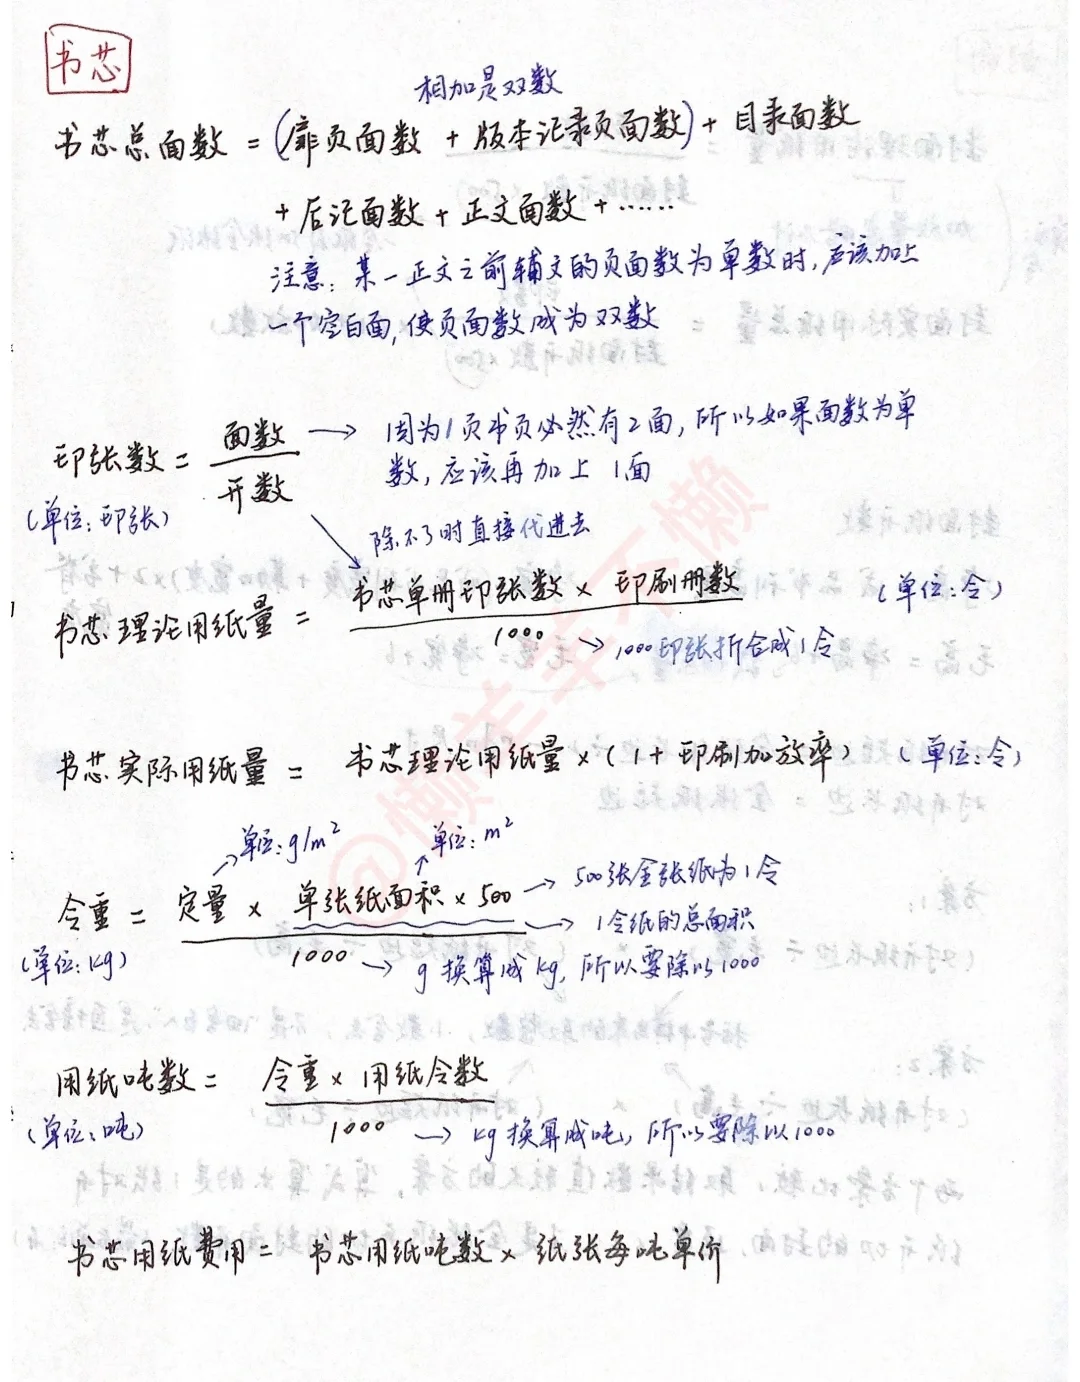 书芯
相加是双数
书芯总面数 = (扉页面数 + 版本记录页面数) + 目录面数
+ 后记面数 + 正文面数 + ……
注意：某一正文之前辅文的页面数为单数时，应该加上
一个空白面，使页面数成为双数
印张数 = 面数 / 开数
→ 因为1页书页必然有2面，所以如果面数为单
数，应该再加上1面
(单位：印张)
除不了时直接代进去
书芯理论用纸量 = 书芯单册印张数 × 印刷册数 / 1000 (单位：令)
→ 1000印张折合成1令
书芯实际用纸量 = 书芯理论用纸量 × (1 + 印刷加放率) (单位：令)
单位：g/m² 单位：m²
令重 = 定量 × 单张纸面积 × 500 / 1000
→ 500张全张纸为1令
→ 1令纸的总面积
(单位：kg)
→ g换算成kg，所以要除以1000
用纸吨数 = 令重 × 用纸令数 / 1000
(单位：吨)
→ kg换算成吨，所以要除以1000
书芯用纸费用 = 书芯用纸吨数 × 纸张每吨单价
@懒羊羊不懒